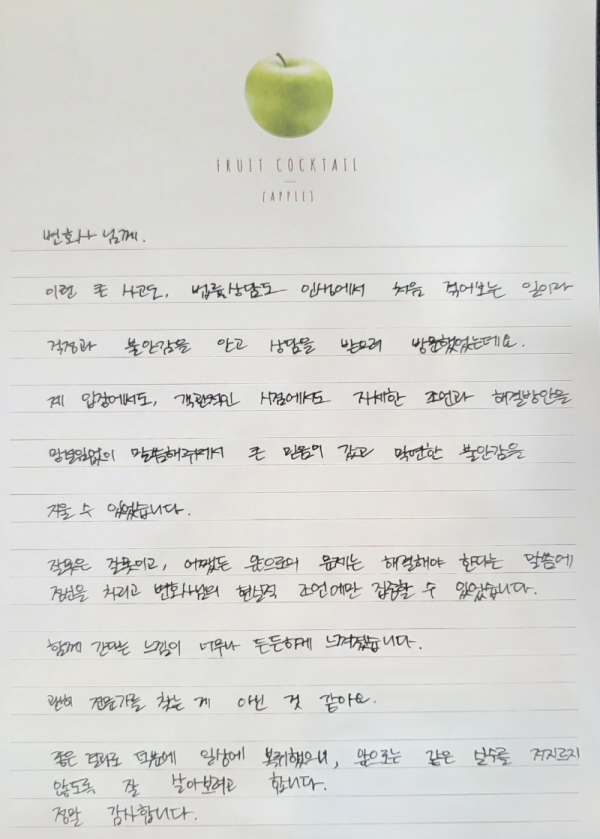 FRUIT COCKTAIL
[APPLE]
변호사님께.
이런 큰 사고도, 법률상담도 인생에서 처음 겪어보는 일이라
걱정과 불안감을 안고 상담을 받으러 방문했었는데요.
제 입장에서도, 객관적인 시점에서도 자세한 조언과 해결방안을
망설임없이 말씀해주셔서 큰 믿음이 갔고 막연한 불안감을
지울 수 있었습니다.
잘못은 잘못이고, 어쨌든 앞으로의 문제는 해결해야 한다는 말씀에
정신을 차리고 변호사님의 현실적 조언에만 집중할 수 있었습니다.
함께 간다는 느낌이 너무나 든든하게 느껴졌습니다.
괜히 전문가를 찾는 게 아닌 것 같아요.
좋은 결과로 덕분에 일상에 복귀했으니, 앞으로는 같은 실수를 저지르지
않도록 잘 살아보려고 합니다.
정말 감사합니다.